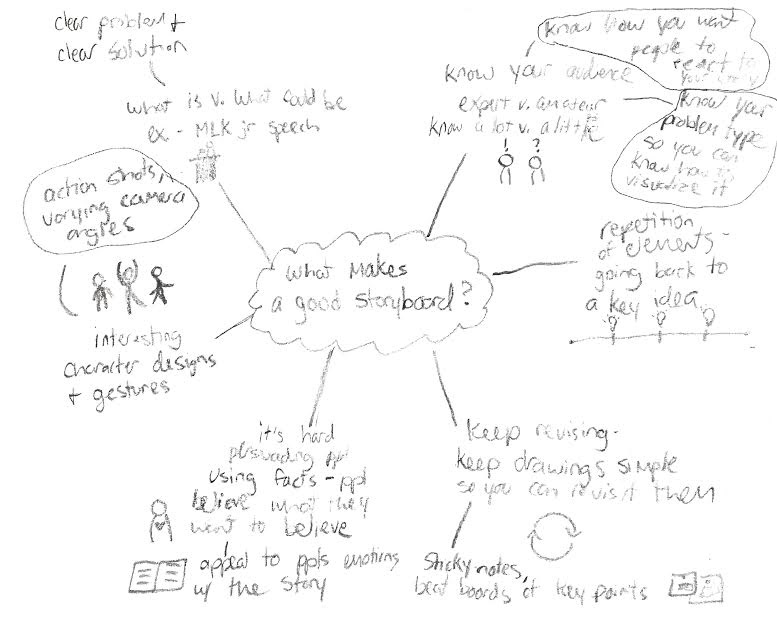 clear problem +
clear solution
what is v. what could be
ex. - MLK jr speech
know how you want
people to
react to
your
know your audience
expert v. amateur
know a lot v. a little
! ?
know your
problem type
so you can
know how to
visualize it
action shots,
varying camera
angles
interesting
character designs
+ gestures
what makes
a good storyboard?
repetition
of elements -
going back to
a key idea
it's hard
persuading ppl
using facts - ppl
believe what they
want to believe
appeal to ppls emotions
w/ the story
keep revising -
keep drawings simple
so you can revisit them
sticky notes,
beat boards at key points